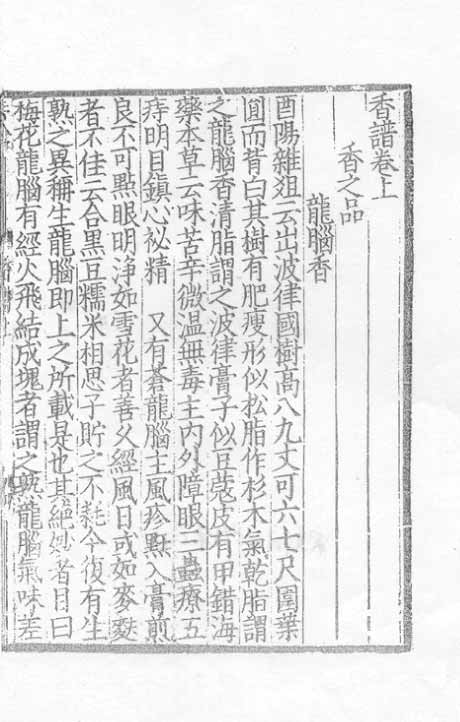 香譜卷上
香之品
龍腦香
酉陽雜俎云出波律國樹高八九丈可六七尺圍葉
圓而背白其樹有肥瘦形似松脂作杉木氣乾脂謂
之龍腦香清脂謂之波律膏子似豆蔻皮有甲錯海
藥本草云味苦辛微温無毒主内外障眼三蟲療五
痔明目鎮心祕精 又有蒼龍腦主風疹䵟入膏煎
良不可點眼明浄如雪花者善久經風日或如麥麩
者不佳云合黑豆糯米相思子貯之不耗今復有生
熟之異稱生龍腦即上之所載是也其絶妙者目曰
梅花龍腦有經火飛結成塊者謂之熟龍腦氣味差